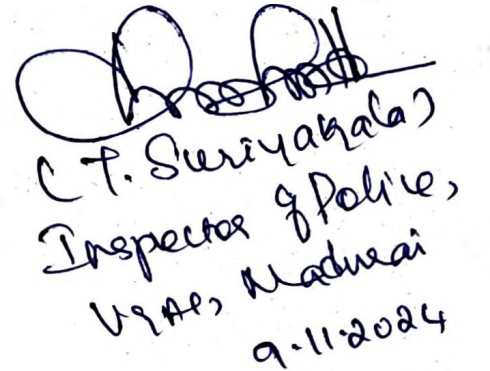 (T. Suriyakala)
Inspector of Police,
V&AC, Madurai
9.11.2024